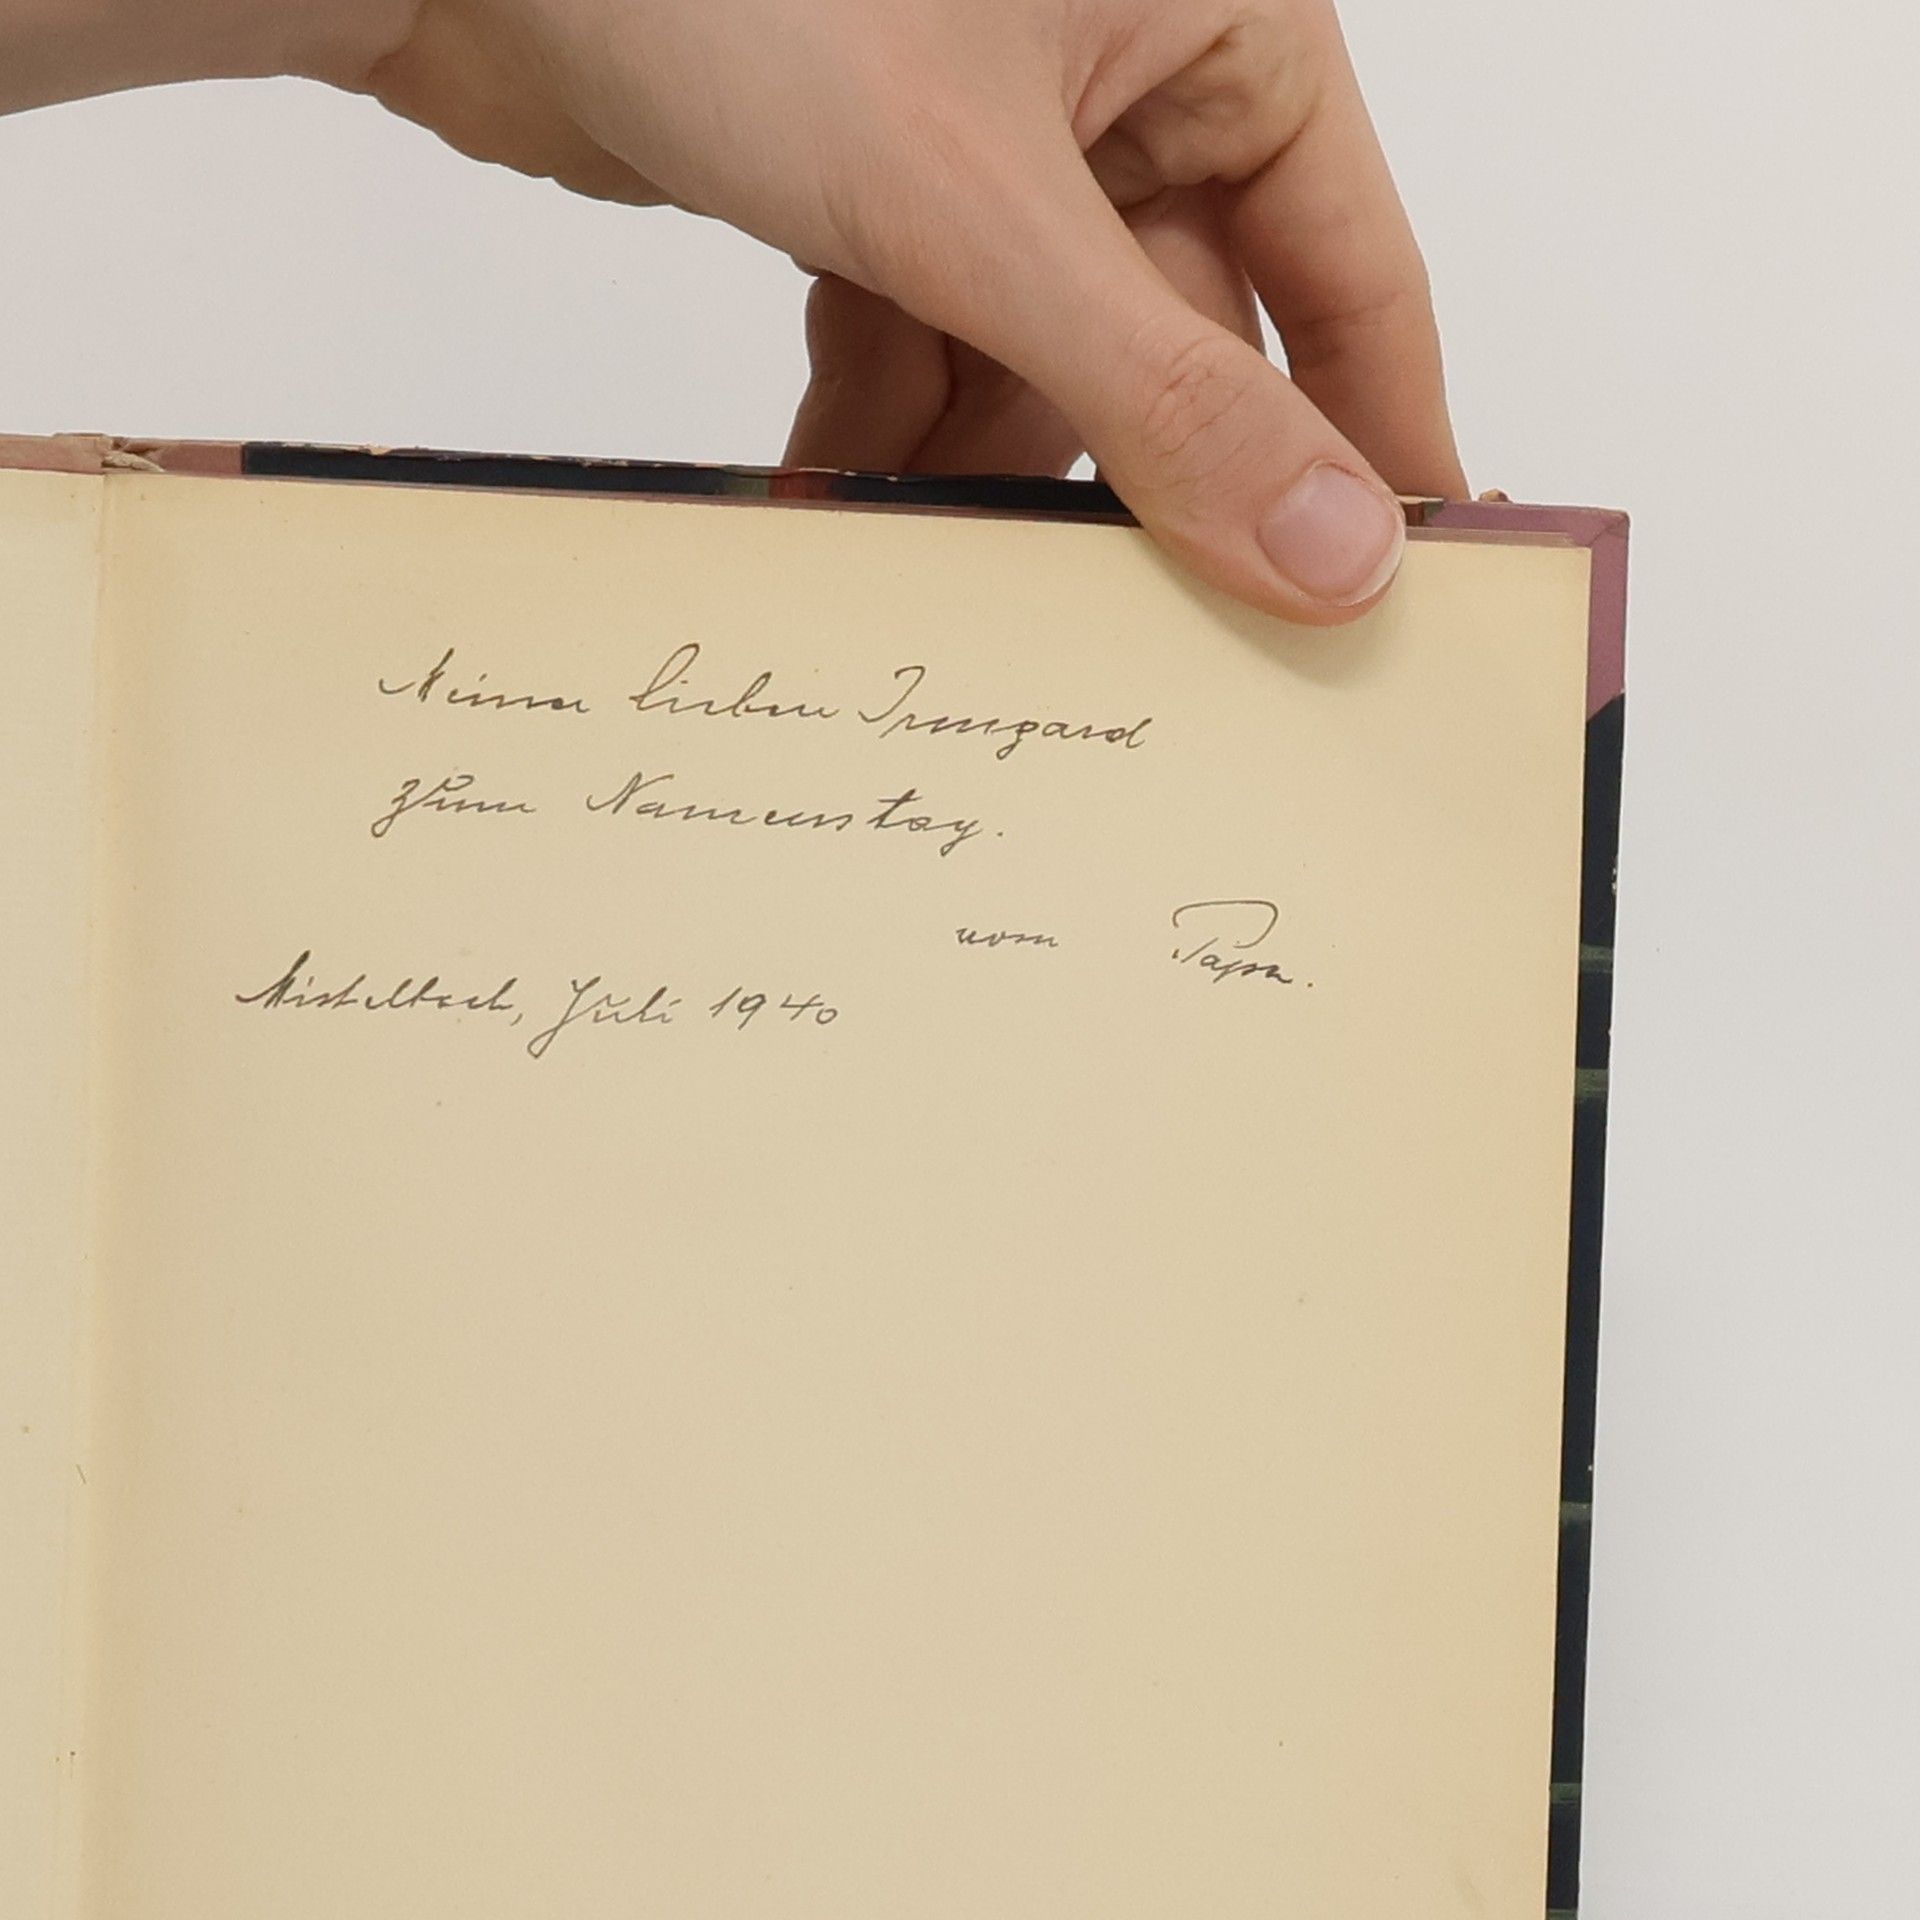 Meiner lieben Irmgard
zum Namenstag.
vom Papa.
Mistelbach, Juli 1940